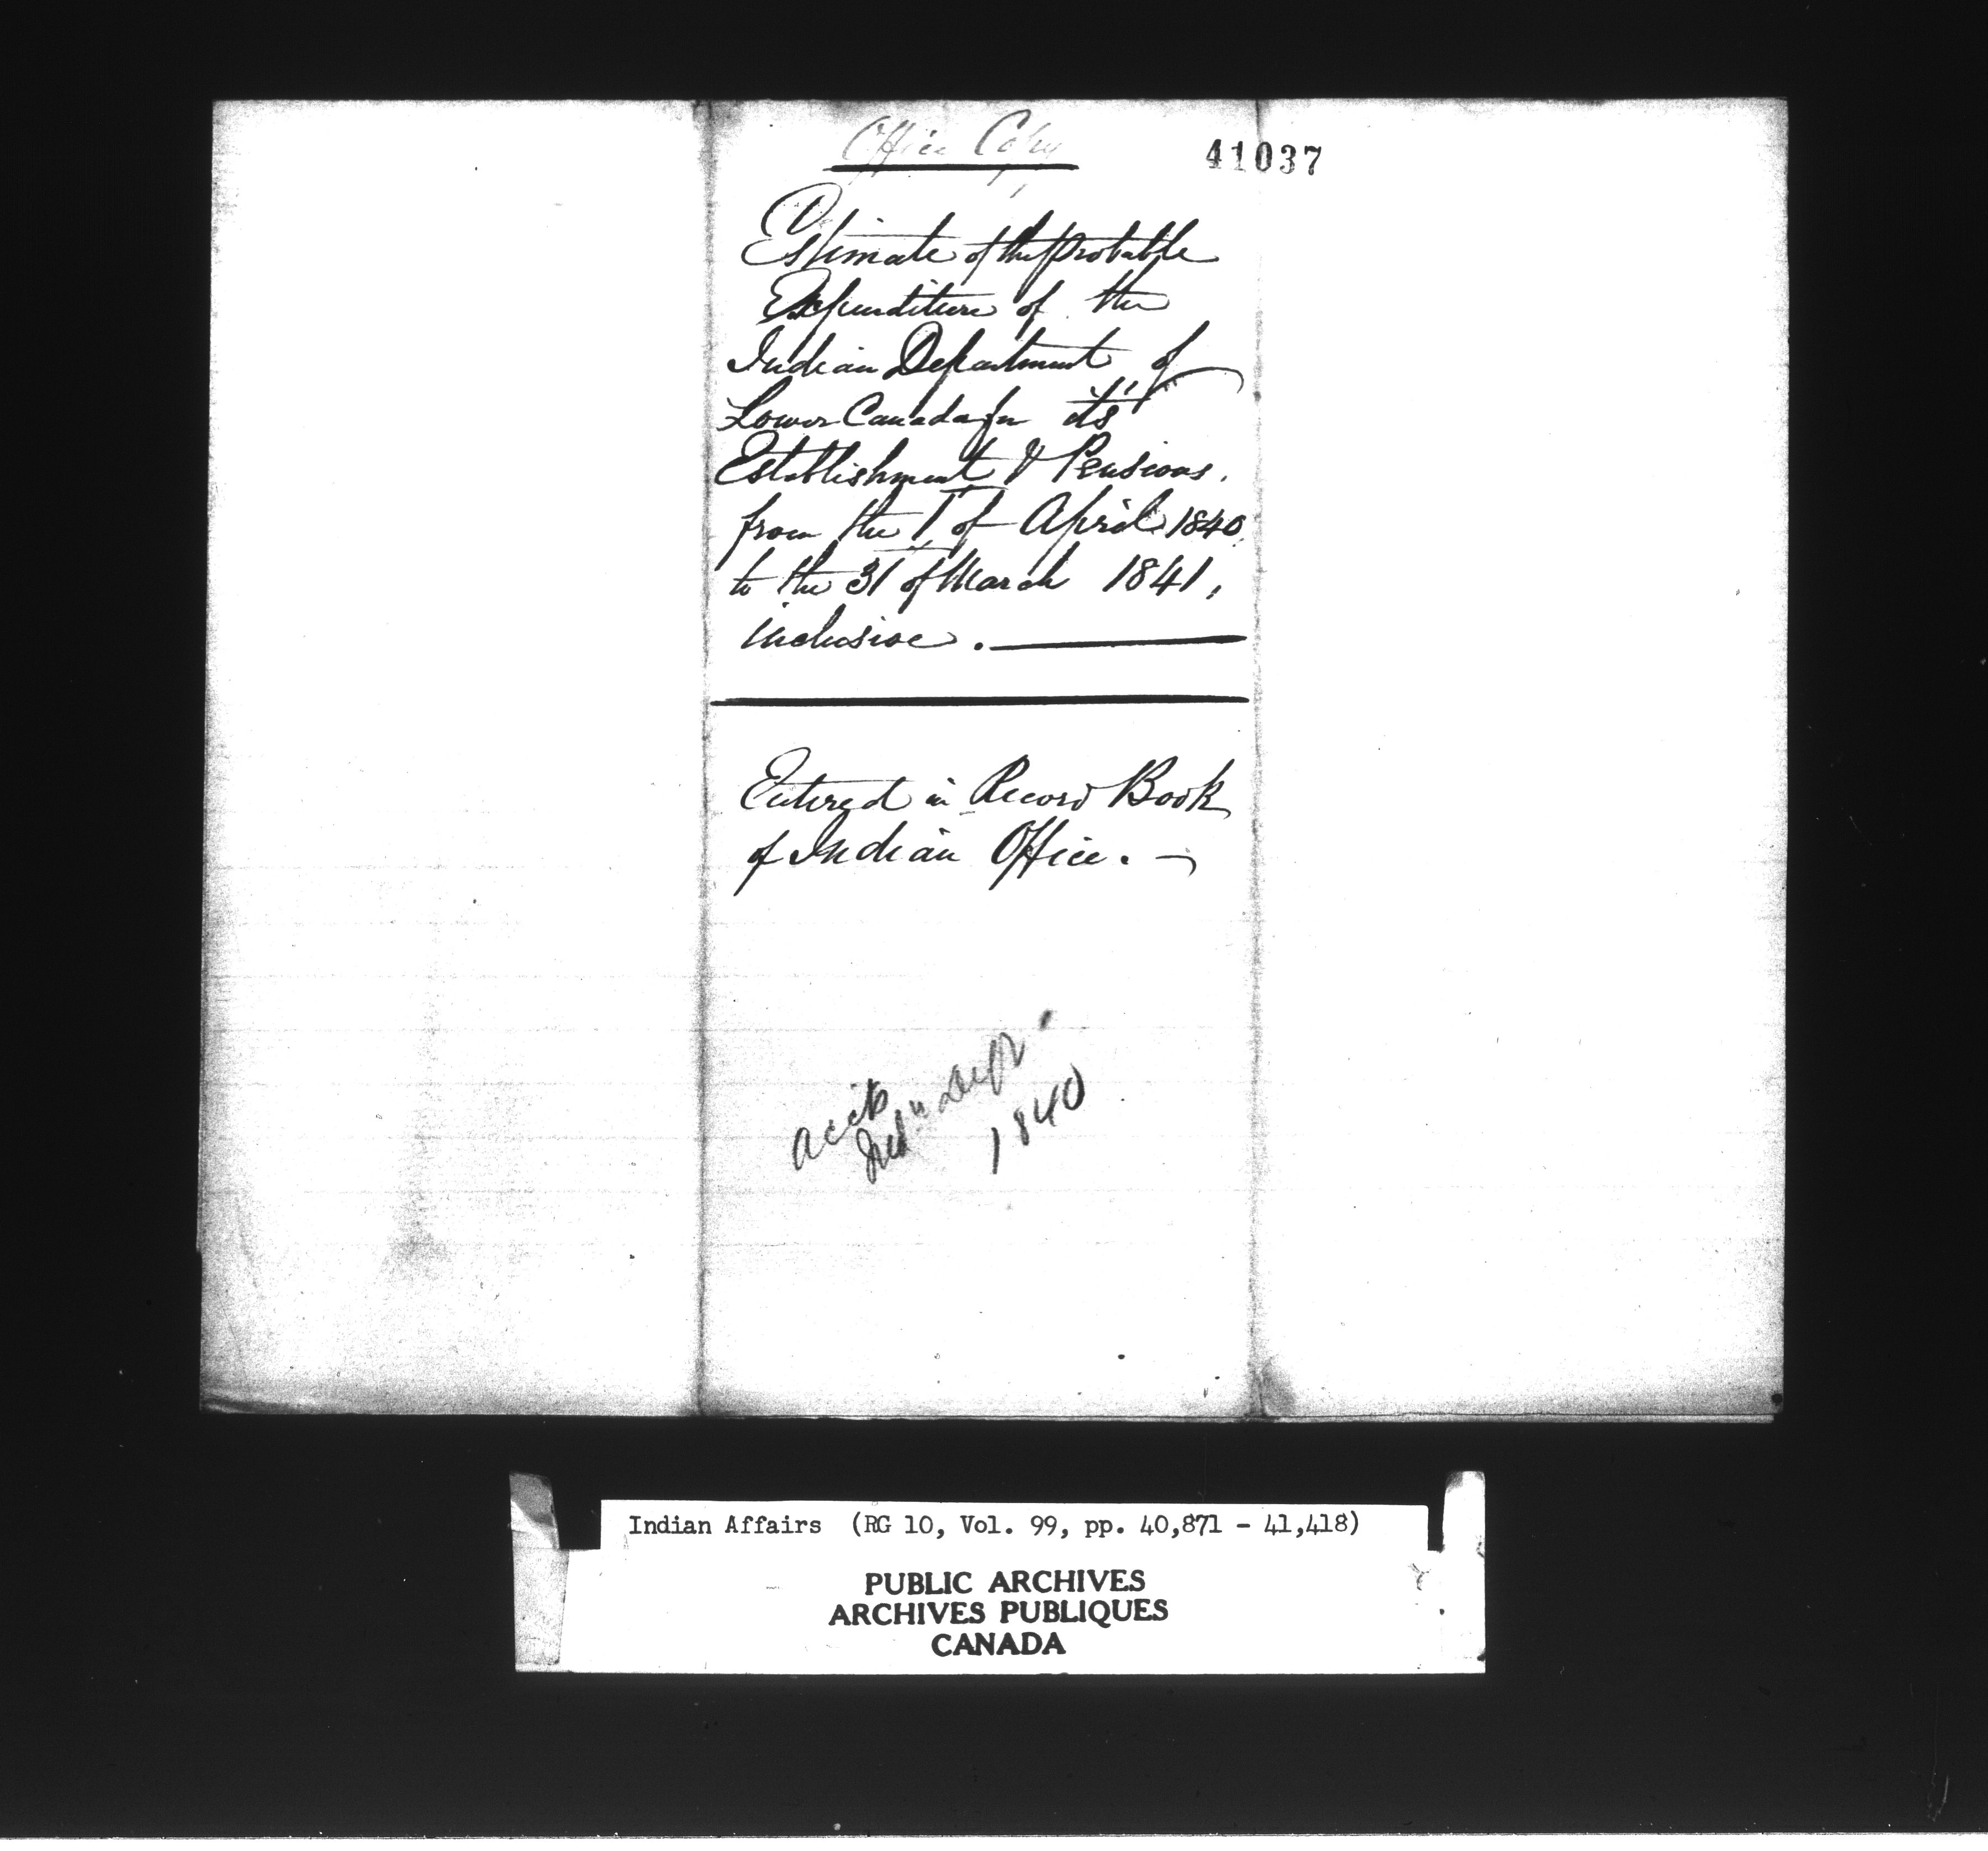 Office Copy
41037
Estimate of the probable
Expenditure of the
Indian Department of
Lower Canada for it's
Establishment & Pensions.
from the 1st of April 1840
to the 31st of March 1841,
inclusive.
Entered in Record Book
of Indian Office. —
Accts
Indn Dept
1840
Indian Affairs (RG 10, Vol. 99, pp. 40,871 - 41,418)
PUBLIC ARCHIVES
ARCHIVES PUBLIQUES
CANADA